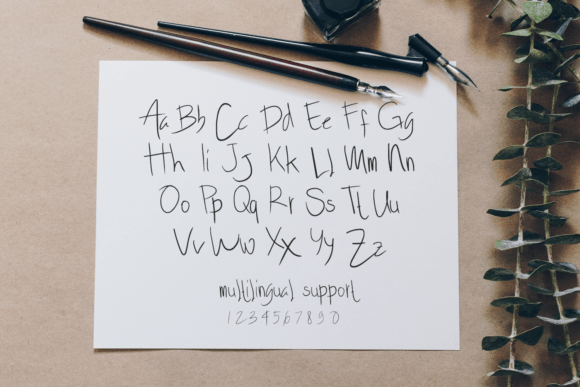 Aa Bb Cc Dd Ee Ff Gg
Hh Ii Jj Kk Ll Mm Nn
Oo Pp Qq Rr Ss Tt Uu
Vv Ww Xx Yy Zz
multilingual support
1234567890